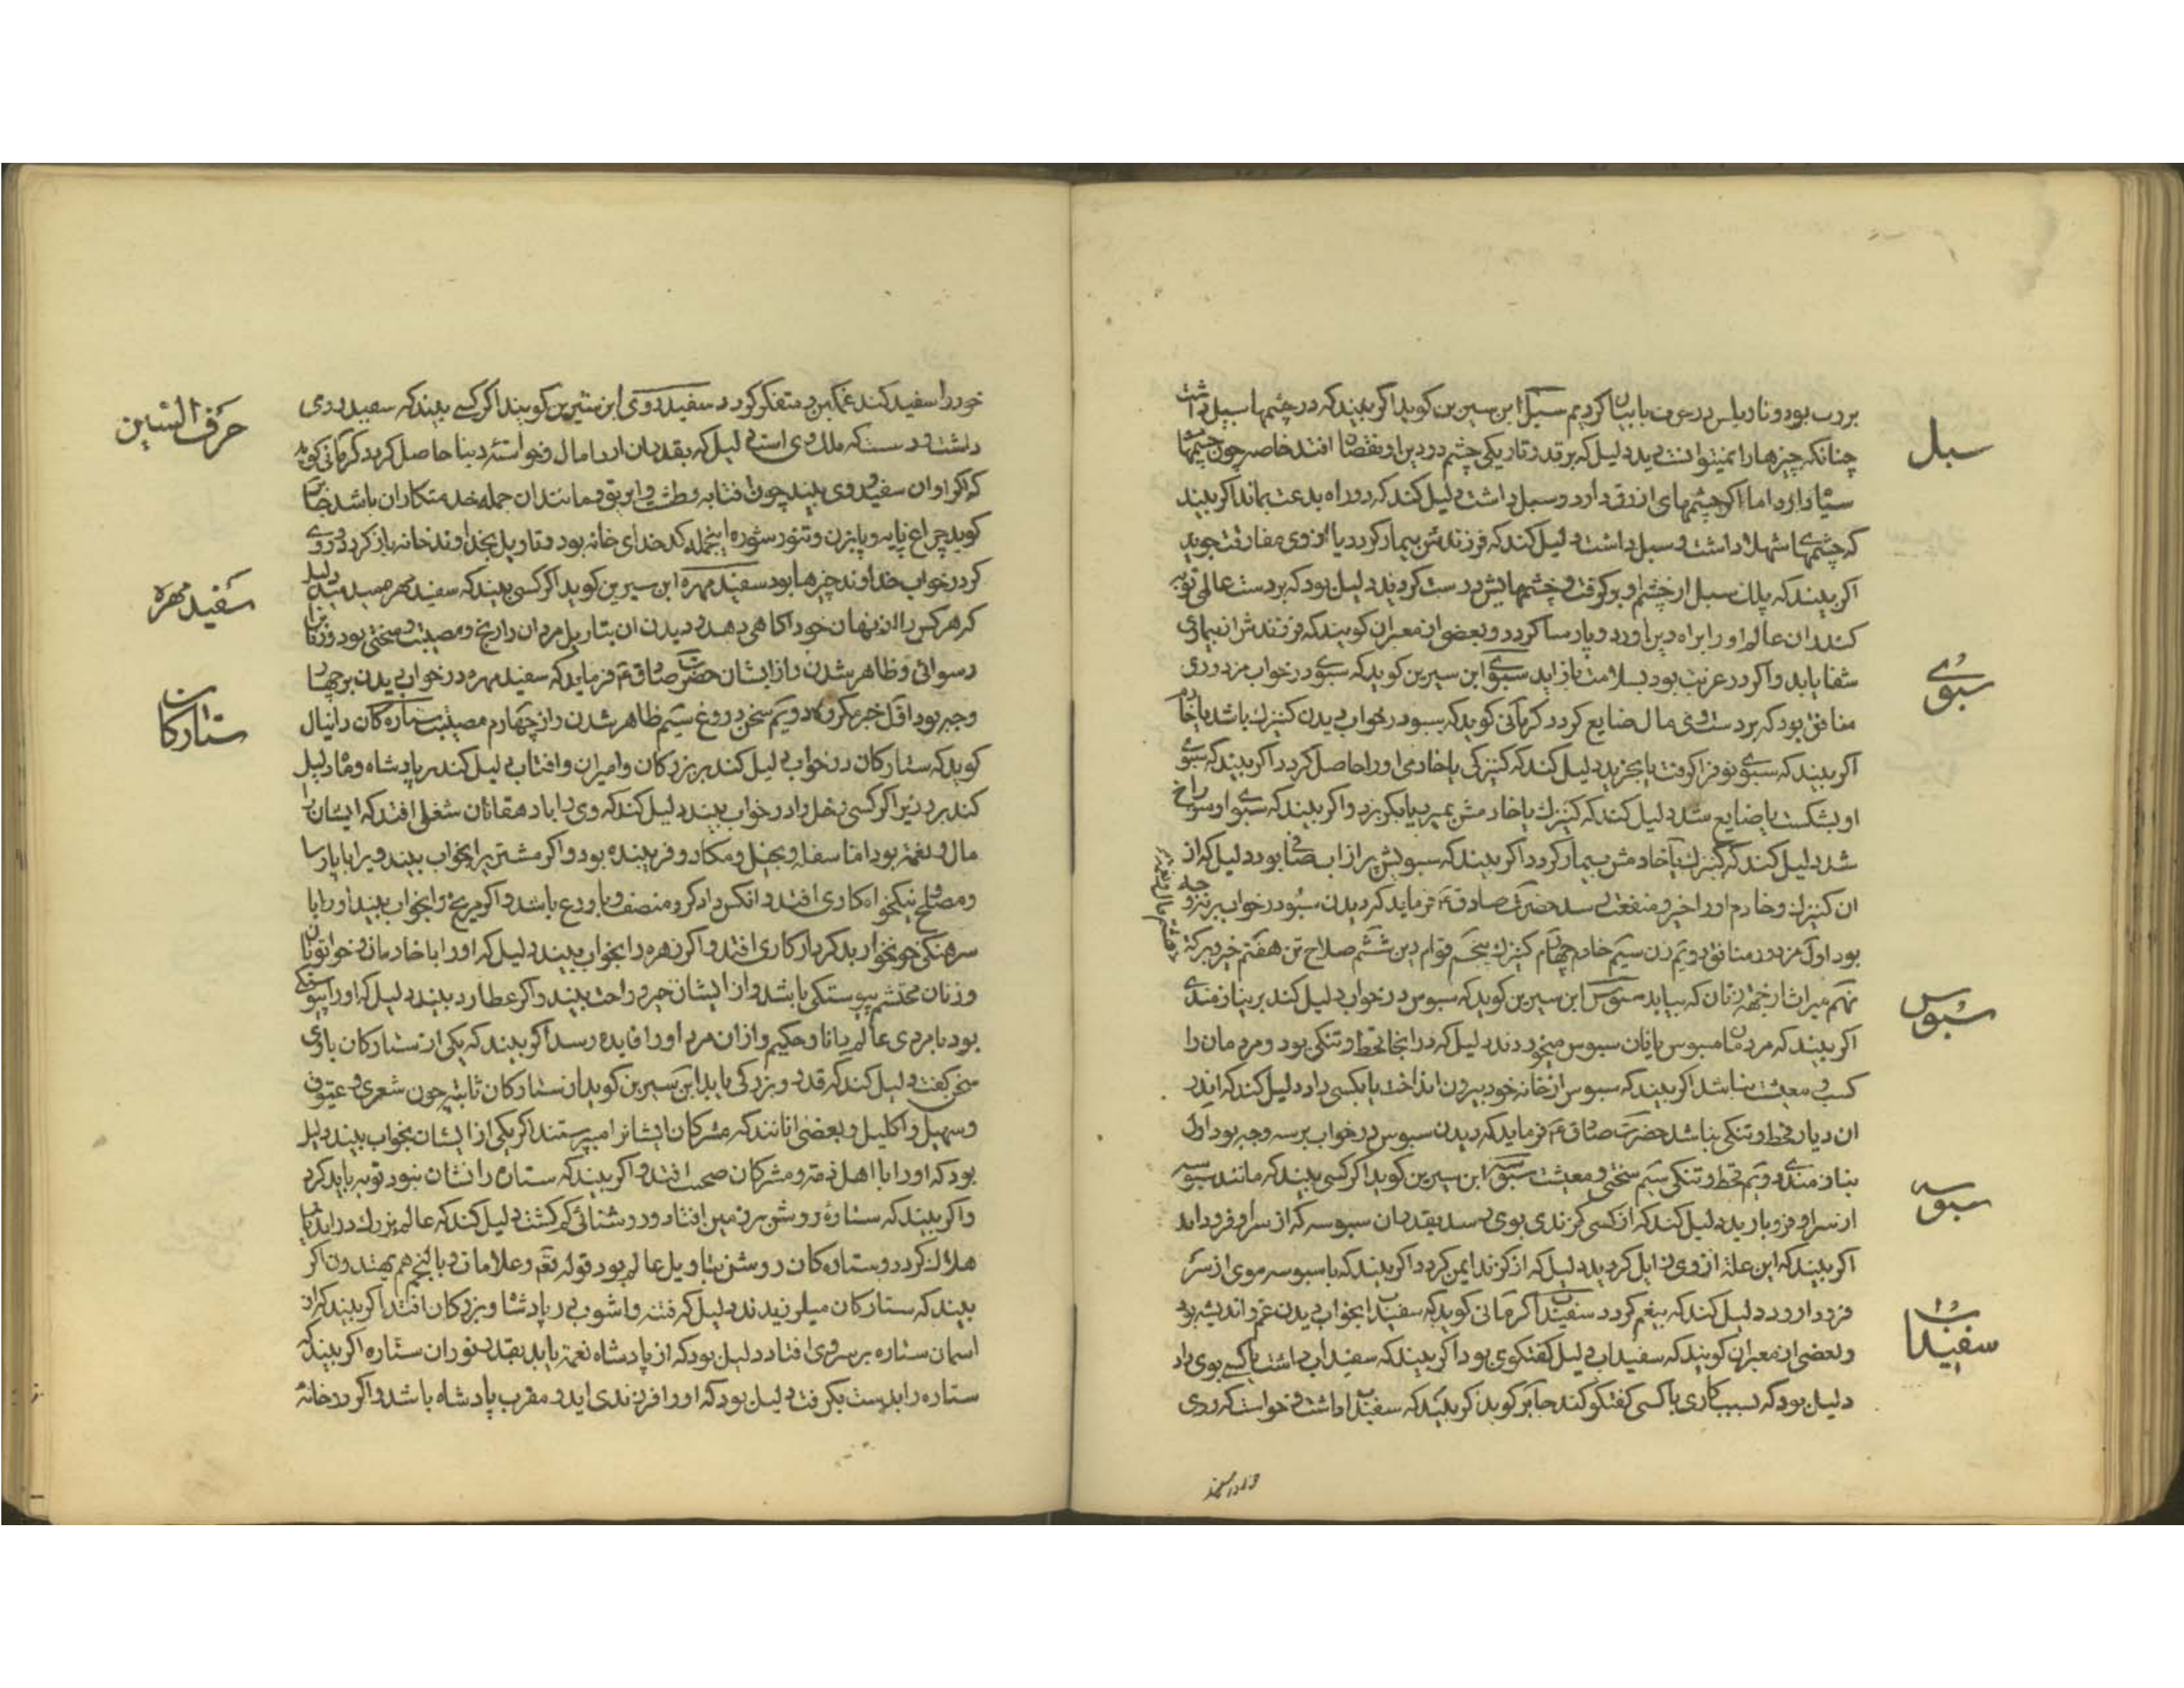 سبل
بود و تاویلش در حرف با بیان کردیم سبل ابن سیرین کوید اکر بیند که در چشمها سبل داشت
چنانکه چیزها را نمیتوانست دید دلیل که بر قدر تاریکی چشم در دین او نقصان افتد خاصه چون چشمها
سیاه دارد اما اکر چشمهای ازرق دارد و سبل داشت دلیل کند که در راه بدعت بماند اکر بیند
که چشمهای شهلا داشت و سبل داشت دلیل کند که فرزندش بیمار کردد یا از وی مفارقت جوید
اکر بیند که سبل از چشم او بر کوفت و چشمهایش درست کردید دلیل بود که بر دست عالمی توبه
کند ان عالم او را براه دین اورد و پارسا کردد و بعضی از معبران کویند که فرزندش از بیماری
سبوی
شفا یابد و اکر در غربت بود بسلامت باز اید سبوی ابن سیرین کوید که سبوی در خواب مزدوری
منافق بود که بر دست وی مال ضایع کردد کرمانی کوید که سبو در خواب دیدن کنیزک باشد یا خادم
اکر بیند که سبوی نو فرا کرفت یا بخرید دلیل کند که کنیزکی یا خادمی او را حاصل کردد اکر بیند که سبوی
او بشکست یا ضایع شد دلیل کند که کنیزک یا خادمش بمیرد یا بکریزد و اکر بیند که سبوی او سوراخ
شد دلیل کند که کنیزک یا خادمش بیمار کردد اکر بیند که سبویش پر از اب صافی بود دلیل که از
ان کنیزک و خادم او را خیر و منفعت رسد حضرت صادق ع فرماید که دیدن سبو در خواب بر نه وجه
بود اول مزدور منافق دویم زن سیم خادم چهارم کنیزک پنجم قوام دین ششم صلاح تن هفتم خیر و برکة
هشتم مال و نعمت
سبوس
نهم میراث از جهة زنان که بیابد سبوس ابن سیرین کوید که سبوس در خواب دلیل کند بر نیازمندی
اکر بیند که مردمان سبوس یا نان سبوس میخوردند دلیل که در انجا قحط و تنکی بود و مردمان را
کسب و معیشت نباشد اکر بیند که سبوس از خانه خود بیرون انداخت یا بکسی داد دلیل کند که اندر
ان دیار قحط و تنکی نباشد حضرت صادق ع فرماید که دیدن سبوس در خواب بر سه وجه بود اول
سبوسه
نیازمندی دویم قحط و تنکی سیم سختی و معیشت سبوسه ابن سیرین کوید اکر کسی بیند که مانند سبوسه
از سر او فرو بارید دلیل کند که از کسی کزندی بوی رسد بقدر ان سبوسه که از سر او فرود اید
اکر بیند که این علة از وی زایل کردید دلیل که از کزند ایمن کردد اکر بیند که با سبوسه موی از سر
سفیداب
فرود اورد دلیل کند که بیغم کردد سفیداب کرمانی کوید که سفیداب بخواب دیدن غم و اندیشه بود
و بعضی از معبران کویند که سفیداب دلیل کفتکوی بود اکر بیند که سفیداب داشت یا کسی بوی داد
دلیل بود که بسبب کاری با کسی کفتکو کند جابر کوید اکر بیند که سفیداب داشت و خواست که روی
حرف السین
خود را سفید کند غمکین و متفکر کردد سفیدروی ابن سیرین کوید اکر کسی بیند که سفید روی
که اکر او ان سفیدروی بیند چون افتابه و طشت و ابریق و مانند ان جمله خدمتکاران باشد
کوید چراغ پایه و تنور اینجمله کدخدای خانه بود و تاویل بخداوند خانه باز کردد
سفید مهره
که در خواب خداوند چیزها بود سفید مهره ابن سیرین کوید اکر کسی بیند که سفید مهره
که هر کس را از نهان خود اکاهی دهد و دیدن ان بتاویل مردان را رنج و مصیبت و سختی بود و زنان را
رسوائی و ظاهر شدن راز ایشان حضرت صادق ع فرماید که سفید مهره در خواب دیدن بر چهار
ستارکان
وجه بود اول خبر مکروه دویم سخن دروغ سیم ظاهر شدن راز چهارم مصیبت ستاره کان دانیال
کوید که ستارکان در خواب دلیل کند بر بزرکان و امیران و افتاب دلیل کند بر پادشاه و ماه دلیل
کند بر وزیر اکر کسی زحل را در خواب بیند دلیل کند که وی را با دهقانان شغلی افتد که ایشان را
مال و نعمت بود اما سفله و بخیل و مکار و فریبنده بود و اکر مشتری را بخواب بیند ویرا با پارسا
و مصلح نیکخواه کاری افتد و انکس دادکر و منصف و با ورع باشد و اکر مریخ را بخواب بیند او را با
سرهنکی خونخوار بدکردار کاری افتد و اکر زهره را بخواب بیند دلیل که او را با خادمان و خواتونان
و زنان محتشم پیوستکی باشد و از ایشان خیر و راحت بیند و اکر عطارد بیند دلیل که او را پیوستکی
بود با مردی عالم دانا و حکیم و از ان مرد او را فایده رسد اکر بیند که یکی از ستارکان با وی
سخن کفت دلیل کند که قدر و بزرکی یابد ابن سیرین کوید ان ستارکان ثابته چون شعری و عیوق
و سهیل و اکلیل و بعضی انانند که مشرکان ایشانرا میپرستند اکر یکی از ایشان بخواب بیند دلیل
بود که او را با اهل ذمه و مشرکان صحبت افتد و اکر بیند که ستاره را نشان نبود توبه باید کرد
و اکر بیند که ستاره روشن بر زمین افتاد و روشنائی کم کشت دلیل کند که عالم بزرک در اندیار
هلاک کردد و ستاره کان روشن بتاویل عالم بود قوله تعه و علامات و بالنجم هم یهتدون اکر
بیند که ستارکان میلرزیدند دلیل که فتنه و اشوب در پادشاه و بزرکان افتد اکر بیند که از
اسمان ستاره بر سر وی افتاد دلیل بود که از پادشاه نعمة یابد بقدر نور ان ستاره اکر بیند که
ستاره را بدست بکرفت دلیل بود که او را فرزندی اید و مقرب پادشاه باشد و اکر در خانهٔ